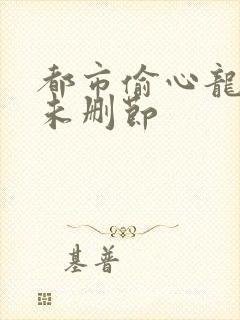 都市偷心龍
未删節
基普